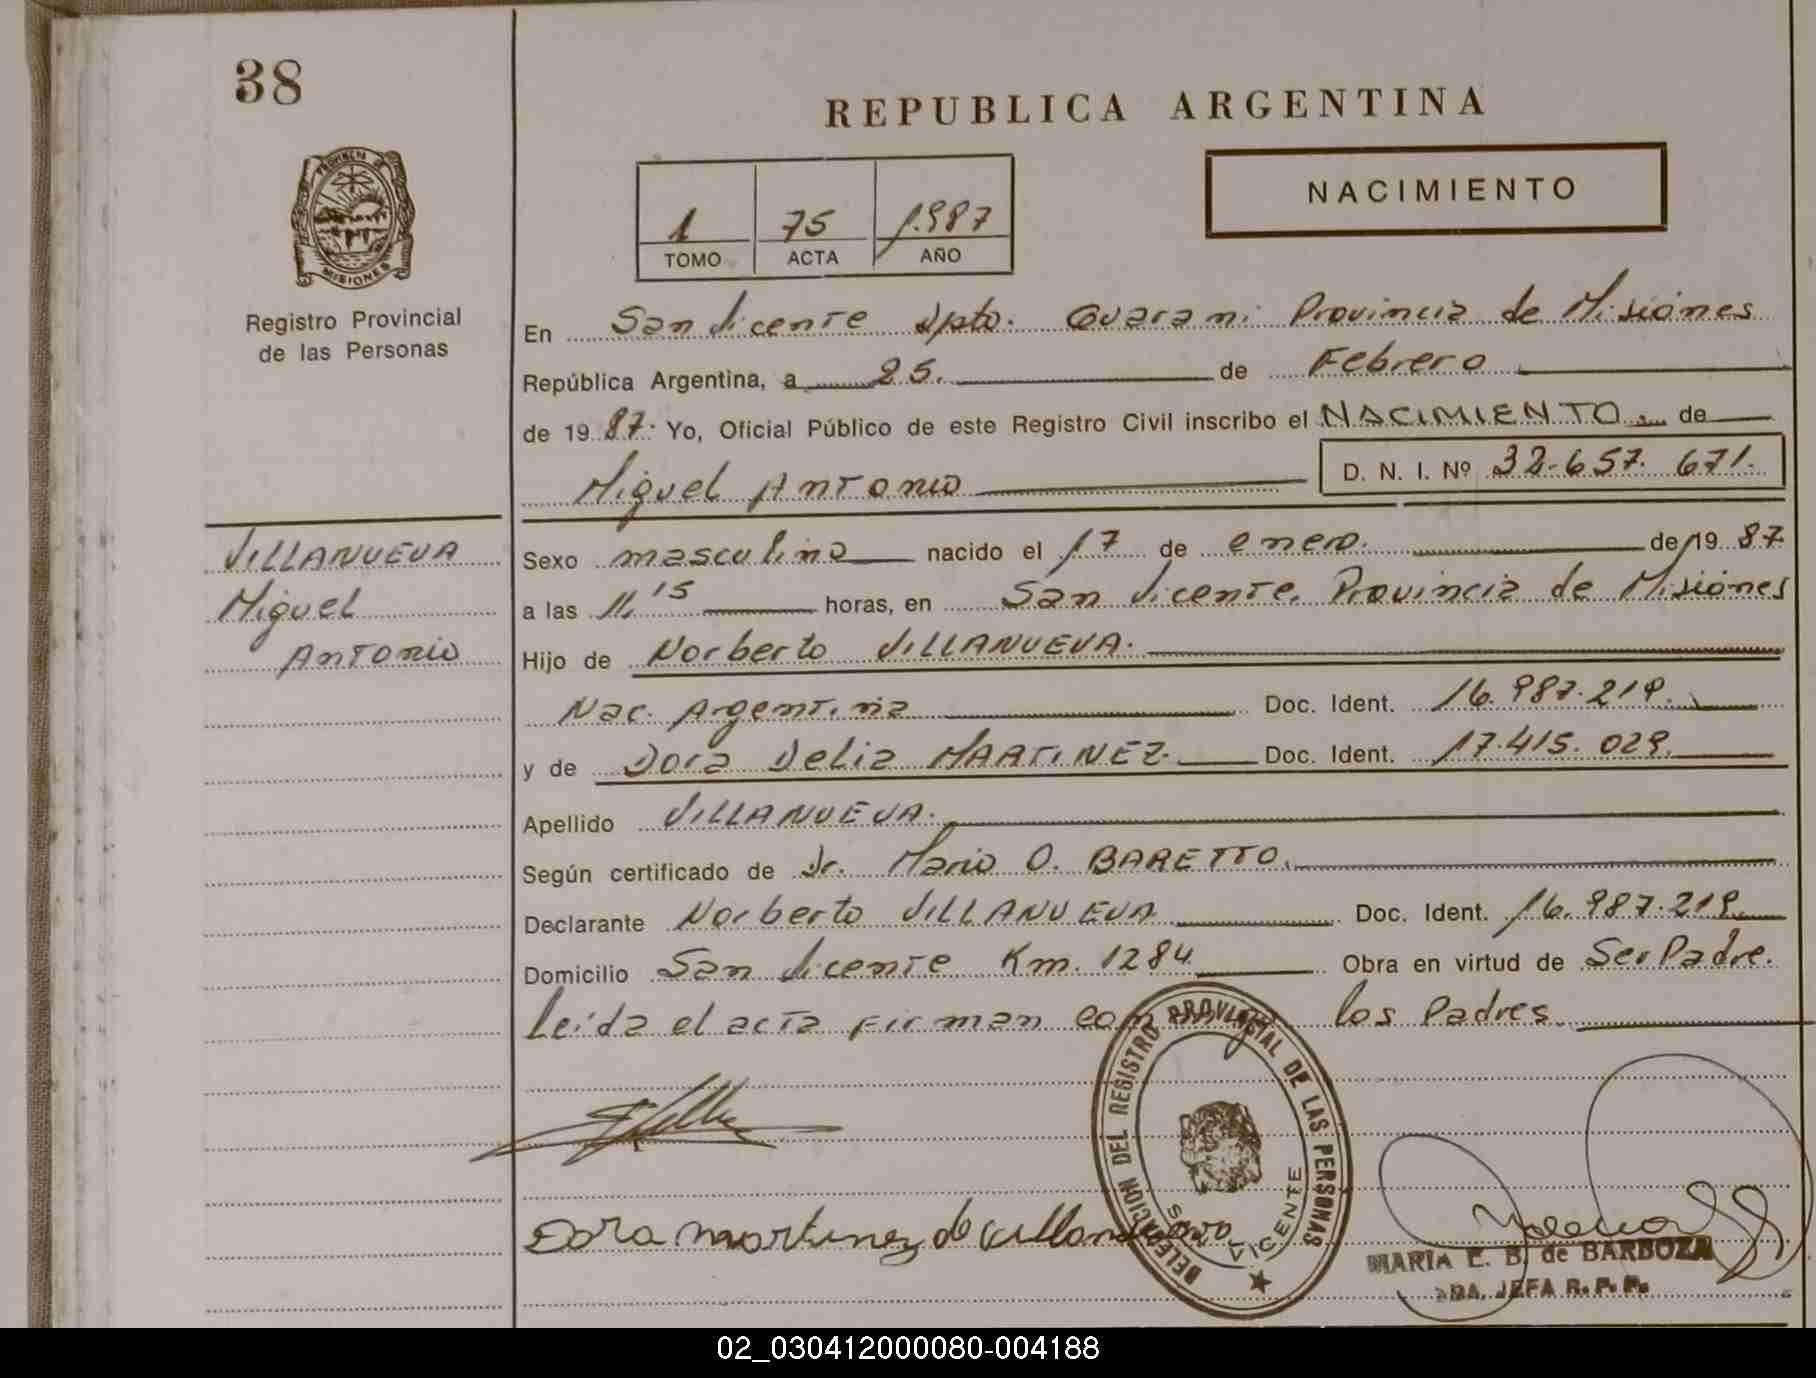 38
REPUBLICA ARGENTINA
PROVINCIA DE
MISIONES
Registro Provincial
de las Personas
1 75 1.987
TOMO ACTA AÑO
NACIMIENTO
En San Vicente Dpto. Guarani Provincia de Misiones
República Argentina, a 25. de Febrero
de 1987. Yo, Oficial Público de este Registro Civil inscribo el NACIMIENTO. de
Miguel Antonio D. N. I. Nº 32.657.671.
VILLANUEVA
Miguel
Antonio
Sexo masculino nacido el 17 de enero. de 1987.
a las 11,15 horas, en San Vicente. Provincia de Misiones
Hijo de Norberto VILLANUEVA.
Nac. Argentina Doc. Ident. 16.987.219.
y de Dora Delia MARTINEZ. Doc. Ident. 17.415.029.
Apellido VILLANUEVA.
Según certificado de Dr. Mario O. BARETTO.
Declarante Norberto VILLANUEVA Doc. Ident. 16.987.219.
Domicilio San Vicente Km. 1284 Obra en virtud de Ser Padre.
Leída el acta firman con los Padres
DELEGACION DEL REGISTRO PROVINCIAL DE LAS PERSONAS
SAN VICENTE
Dora Martinez de Villanueva
MARIA E. B. de BARBOZA
JEFA R. P. P.
02_030412000080-004188